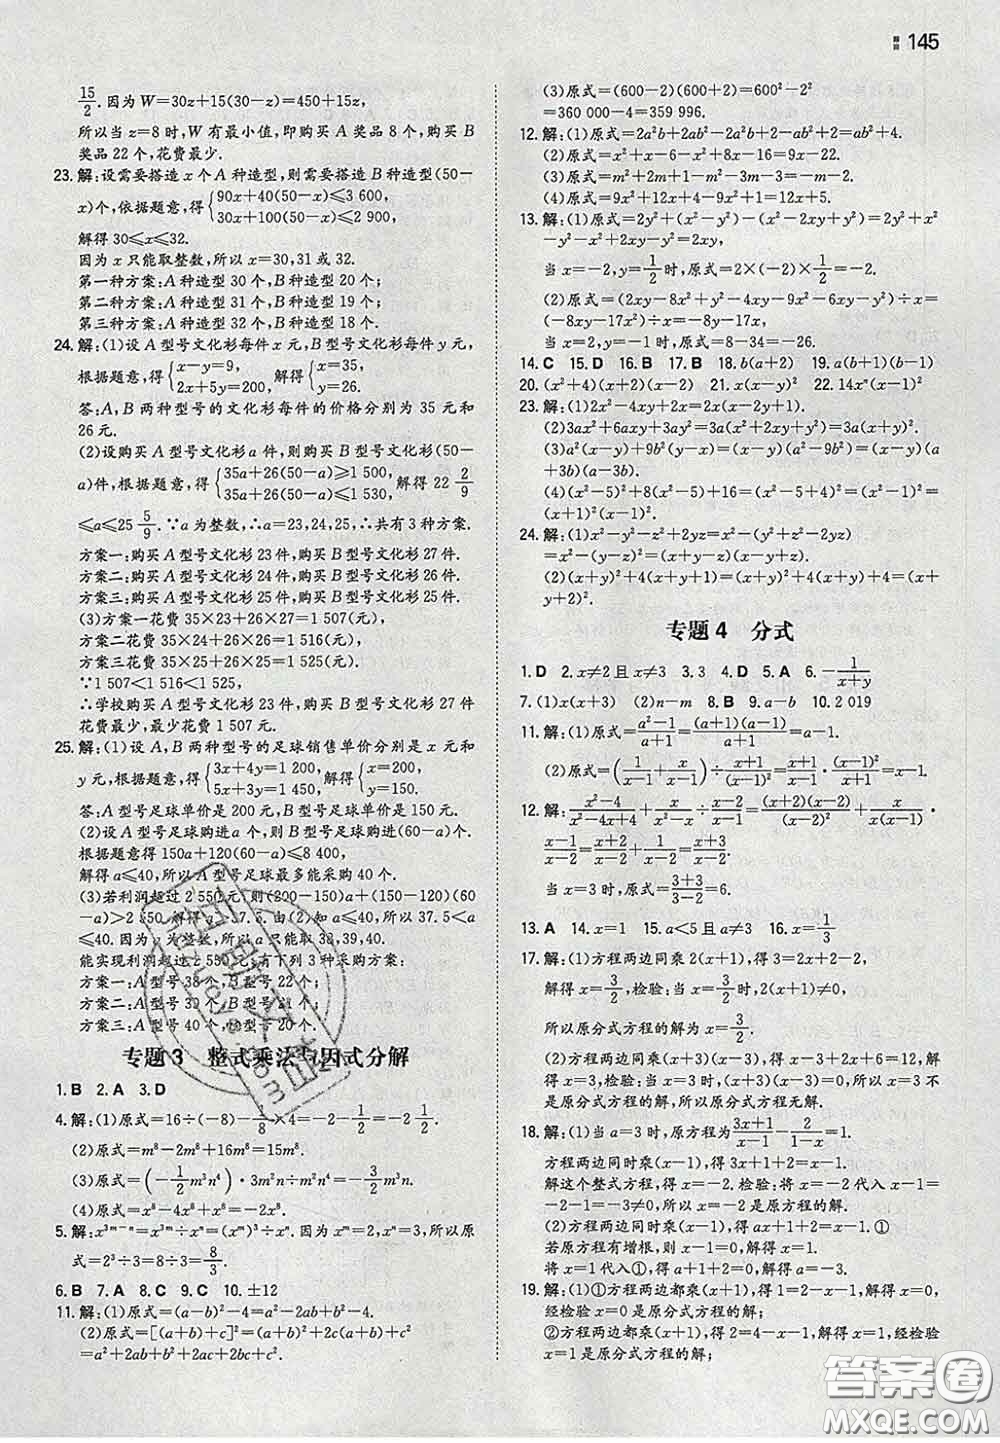 145
15/2.因为W=30z+15(30-z)=450+15z,
所以当z=8时,W有最小值,即购买A奖品8个,购买B
奖品22个,花费最少.
23.解:设需要搭造x个A种造型,则需要搭造B种造型(50-
x)个,依据题意,得{90x+40(50-x)≤3 600,
30x+100(50-x)≤2 900,
解得30≤x≤32.
因为x只能取整数,所以x=30,31或32.
第一种方案:A种造型30个,B种造型20个;
第二种方案:A种造型31个,B种造型19个;
第三种方案:A种造型32个,B种造型18个.
24.解:(1)设A型号文化衫每件x元,B型号文化衫每件y元,
根据题意,得{x-y=9, 2x+5y=200, 解得{x=35, y=26.
答:A,B两种型号的文化衫每件的价格分别为35元和
26元.
(2)设购买A型号文化衫a件,则购买B型号文化衫(50-
a)件,根据题意,得{35a+26(50-a)≥1 500, 35a+26(50-a)≤1 530, 解得22 2/9
≤a≤25 5/9.∵a为整数,∴a=23,24,25,∴共有3种方案.
方案一:购买A型号文化衫23件,购买B型号文化衫27件.
方案二:购买A型号文化衫24件,购买B型号文化衫26件.
方案三:购买A型号文化衫25件,购买B型号文化衫25件.
(3)方案一花费35×23+26×27=1 507(元),
方案二花费35×24+26×26=1 516(元),
方案三花费35×25+26×25=1 525(元).
∵1 507<1 516<1 525,
∴学校购买A型号文化衫23件,购买B型号文化衫27件
花费最少,最少花费1 507元.
25.解:(1)设A,B两种型号的足球销售单价分别是x元和
y元,根据题意,得{3x+4y=1 200, 5x+3y=1 450, 解得{x=200, y=150.
答:A型号足球单价是200元,B型号足球单价是150元.
(2)设A型号足球购进a个,则B型号足球购进(60-a)个,
根据题意得150a+120(60-a)≤8 400,
解得a≤40,所以A型号足球最多能采购40个.
(3)若利润超过2 550元,则(200-150)a+(150-120)(60
-a)>2 550,解得a>37.5.由(2)知a≤40,所以37.5<a
≤40.因为a为整数,所以a只能取38,39,40.
能实现利润超过2 550元,有下列3种采购方案:
方案一:A型号38个,B型号22个.
方案二:A型号39个,B型号21个.
方案三:A型号40个,B型号20个.
专题3 整式乘法与因式分解
1.B 2.A 3.D
4.解:(1)原式=16÷(-8)-1/8×4=-2-1/2=-2 1/2.
(2)原式=m⁸-2m⁸+16m⁸=15m⁸.
(3)原式=(-1/2m³n⁴)·3m²n=-3/2m⁵n⁵.
(4)原式=x⁶-x⁶-x⁶=-x⁶.
5.解:x³ᵐ⁻ⁿ=x³ᵐ÷xⁿ=(xᵐ)³÷xⁿ.因为xᵐ=2,xⁿ=3,所以原
式=2³÷3=8÷3=8/3.
6.B 7.A 8.C 9.C 10.±12
11.解:(1)原式=(a-b)²-4=a²-2ab+b²-4.
(2)原式=[(a+b)+c]²=(a+b)²+2(a+b)c+c²
=a²+2ab+b²+2ac+2bc+c².
(3)原式=(600-2)(600+2)=600²-2²
=360 000-4=359 996.
12.解:(1)原式=2a²b+2ab²-2ab²-2a²b+ab+4=ab+4.
(2)原式=x²+x-6-x²+8x-16=9x-22.
(3)原式=m²+2m+1-m²-2m-3m-6=-3m-5.
(4)原式=4x²+12x+9-4x²+9-9+12x... 
13.解:(1)原式=2y²+(x²-y²)-(x²-2xy+y²)=2y²+x²
-y²-x²+2xy-y²=2xy,
当x=-2,y=1/2时,原式=2×(-2)×1/2=-2.
(-8xy-17x²)÷x=-8y-17x,
当x=2,y=-1时,原式=8-34=-26.
14.C 15.D 16.B 17.B 18.b(a+2) 19.a(b+1)(b-1)
20.(x²+4)(x+2)(x-2) 21.x(x-y)² 22.14xⁿ(x-1)²
23.解:(1)2x²-4xy+2x=2x(x-2y+1).
(2)3ax²+6axy+3ay²=3a(x²+2xy+y²)=3a(x+y)².
(3)a²(x-y)+9b²(y-x)=(x-y)(a²-9b²)=(x-y)(a
+3b)(a-3b).
(4)(x²-5)²+8(x²-5)+16=(x²-5+4)²=(x²-1)²=(x
+1)²(x-1)².
24.解:(1)x²-y²-z²+2yz=x²-(y²+z²-2yz)
=x²-(y-z)²=(x+y-z)(x-y+z).
(2)(x+y)²+4(x+y+1)=(x+y)²+4(x+y)+4=(x+
y+2)².
专题4 分式
1.D 2.x≠2且x≠3 3.3 4.D 5.A 6.-1/(x+y)
7.(1)x(x+3) (2)n-m 8.B 9.a-b 10.2 019
11.解:(1)原式=(a²-1)/(a+1)=(a+1)(a-1)/(a+1)=a-1.
(2)原式=(x/(x-1)+1/(x-1))÷(x+1)/(x-1)²=(x+1)/(x-1)·(x-1)²/(x+1)=x-1.
12.解:(x²-4)/(x²-4x+4)+x/(x²-x)÷(x-2)/(x-1)=(x+2)(x-2)/(x-2)²+x/x(x-1)·
(x-1)/(x-2)=(x+2)/(x-2)+1/(x-2)=(x+3)/(x-2).
当x=3时,原式=(3+3)/(3-2)=6.
13.A 14.x=1 15.a<5且a≠3 16.x=1/3
17.解:(1)方程两边同乘2(x+1),得3=2x+2-2,
解得x=3/2,检验:当x=3/2时,2(x+1)≠0,
所以原分式方程的解为x=3/2.
(2)方程两边同时乘(x+3)(x-3),得3+x(x+3)=x²-9,
解得x=-4...
是原分式方程的解,所以原分式方程无解.
18.解:(1)当a=3时,原方程为(3x+1)/(x-1)-2/(1-x)=1.
方程两边同时乘(x-1),得3x+1+2=x-1,
解这个整式方程,得x=-2.检验:将x=-2代入x-1
=-2-1=-3≠0,所以x=-2是原分式方程的解.
(2)方程两边同时乘(x-1),得ax+1+2=x-1.①
若原方程有增根,则x-1=0,解得x=1.
将x=1代入①,得a+1+2=0,解得a=-3.
19.解:(1)①方程两边都乘(x+1),得1=2-(x+1),解得x=0,
经检验x=0是原分式方程的解;
②方程两边都乘(x+1),得2=4-(x+1),解得x=1,经检验
x=1是原分式方程的解;
答案圈
MXQE.COM